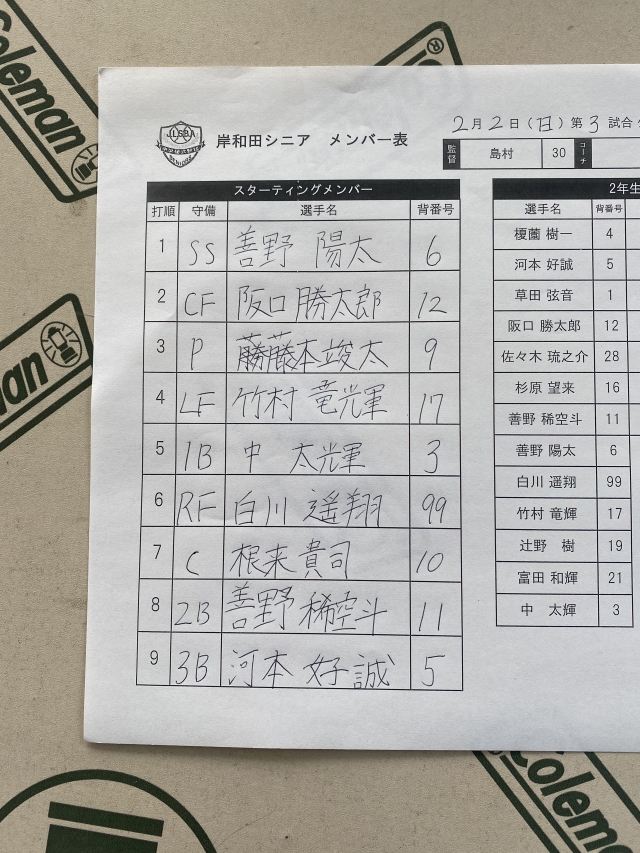 Coleman
®
Coleman
JLSBA
岸和田シニア メンバー表
2月2日(日)第3試合
監督 島村 30 コーチ
スターティングメンバー
打順 守備 選手名 背番号
1 SS 善野 陽太 6
2 CF 阪口 勝太郎 12
3 P 藤本竣太 9
4 LF 竹村 竜輝 17
5 1B 中 太輝 3
6 RF 白川 遥翔 99
7 C 根来貴司 10
8 2B 善野 稀空斗 11
9 3B 河本 好誠 5
2年生
選手名 背番号
榎薗 樹一 4
河本 好誠 5
草田 弦音 1
阪口 勝太郎 12
佐々木 琉之介 28
杉原 望来 16
善野 稀空斗 11
善野 陽太 6
白川 遥翔 99
竹村 竜輝 17
辻野 樹 19
富田 和輝 21
中 太輝 3
man
Coleman